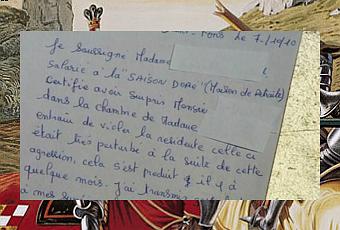 Pons le 7/10/10
Je Soussigné Madame
salarié à la SAISON DORÉ (Maison de Retraite)
certifie avoir surpris Monsieur
dans la chambre de Madame
entrain de violer la residente celle ci
était très perturbé à la suite de cette
agression, cela s'est produit il y à
quelque mois. J'ai transmis
à mes